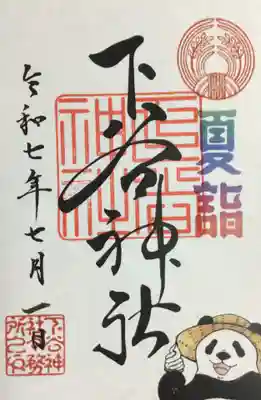 夏詣
下谷神社
令和七年七月一日
下谷神
社社務
所之印